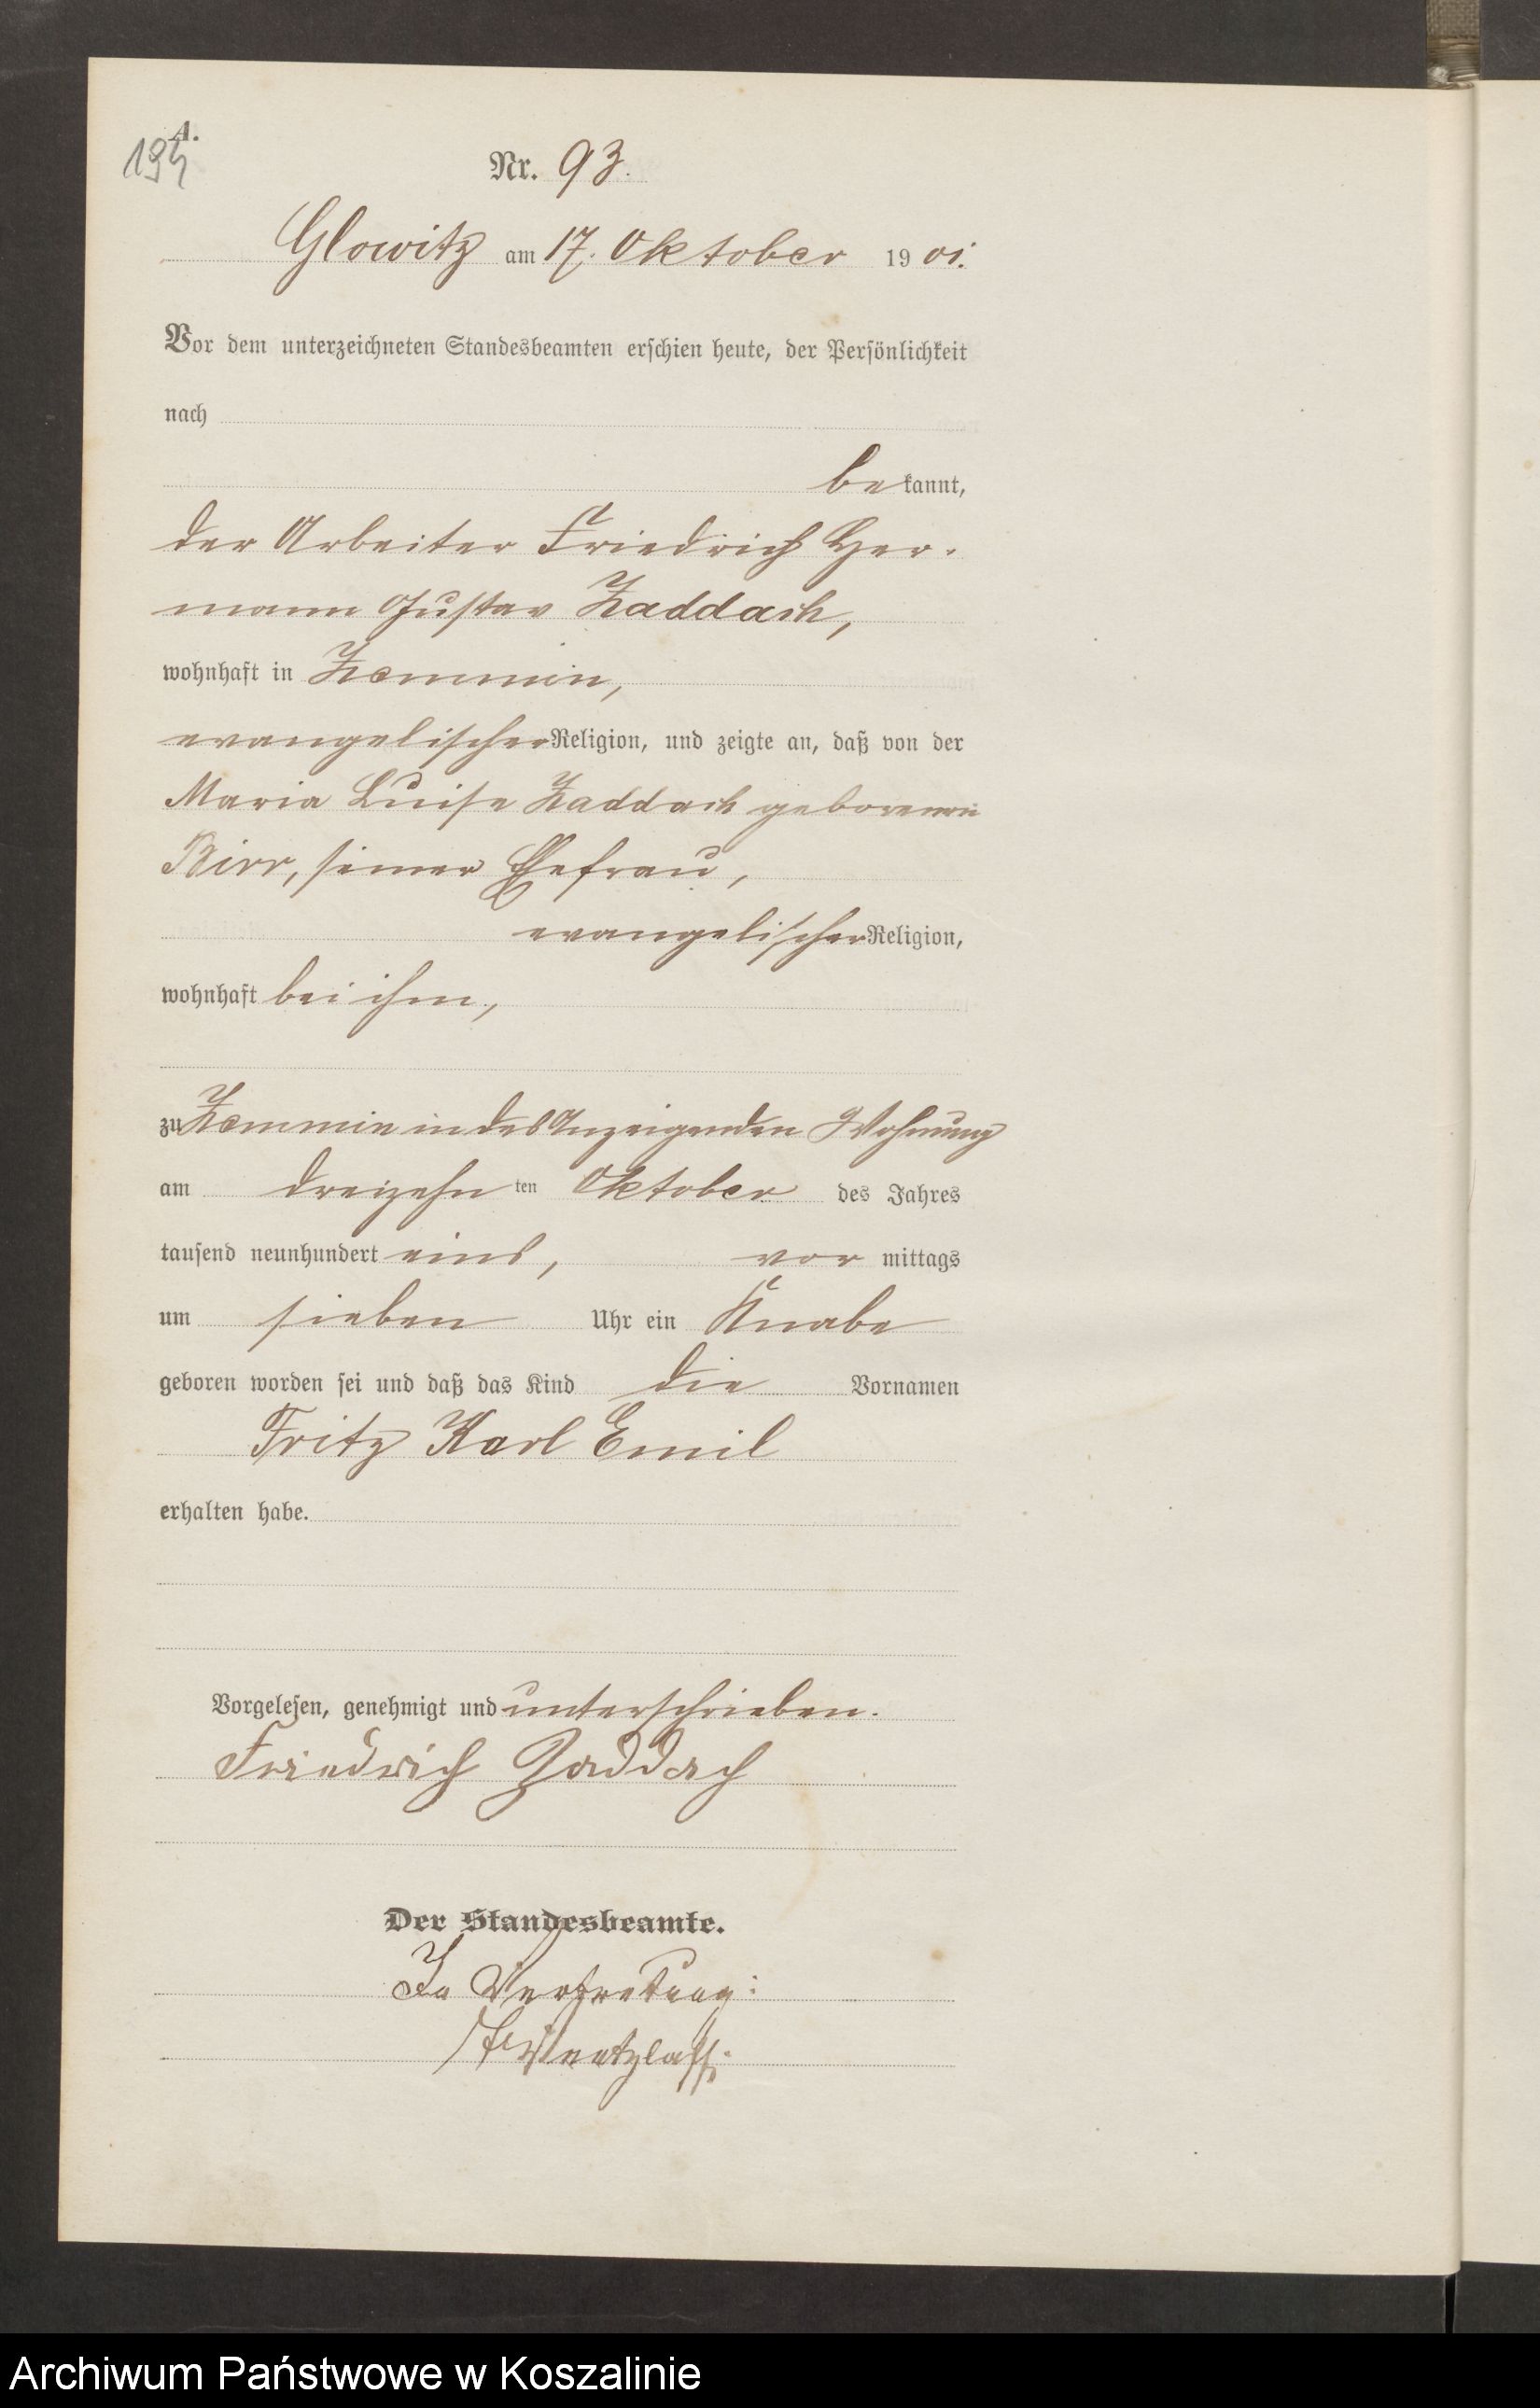 A.
194
Nr. 93.
Glowitz am 17. Oktober 1901.
Vor dem unterzeichneten Standesbeamten erschien heute, der Persönlichkeit
nach
bekannt,
der Arbeiter Friedrich Her-
mann Gustav Zaddach,
wohnhaft in Zemmin,
evangelischer Religion, und zeigte an, daß von der
Maria Luise Zaddach geborenen
Birr, seiner Ehefrau,
evangelischer Religion,
wohnhaft bei ihm,
zu Zemmin in des Anzeigenden Wohnung
am dreizehnten Oktober des Jahres
tausend neunhundert eins, vormittags
um sieben Uhr ein Knabe
geboren worden sei und daß das Kind die Vornamen
Fritz Karl Emil
erhalten habe.
Vorgelesen, genehmigt und unterschrieben.
Friedrich Zaddach
Der Standesbeamte.
In Vertretung:
Wentzlaff.
Archiwum Państwowe w Koszalinie